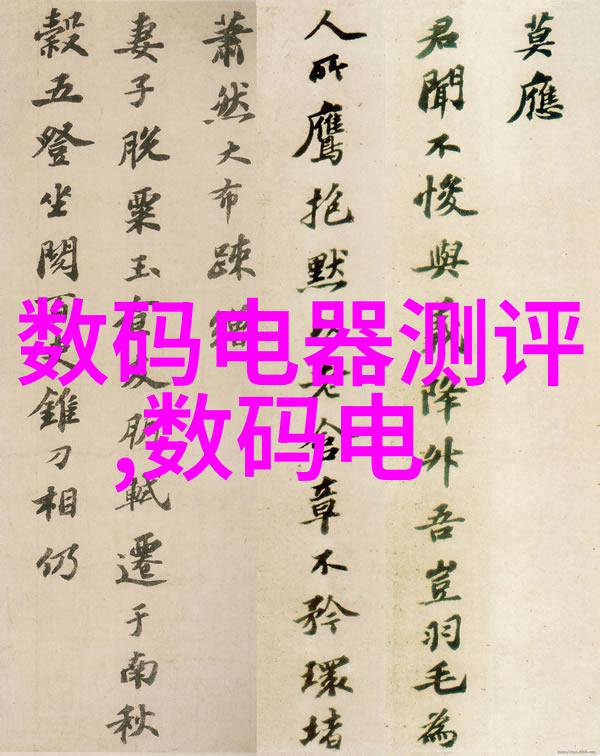 莫應
君聞不悛與降外吾豈羽毛為
人所鷹抱默含章不矜環堵
蕭然大布疎
妻子脫粟玉食朋軾遷于南秋
穀五登坐閱錐刀相仍
数码电器测评
,数码电